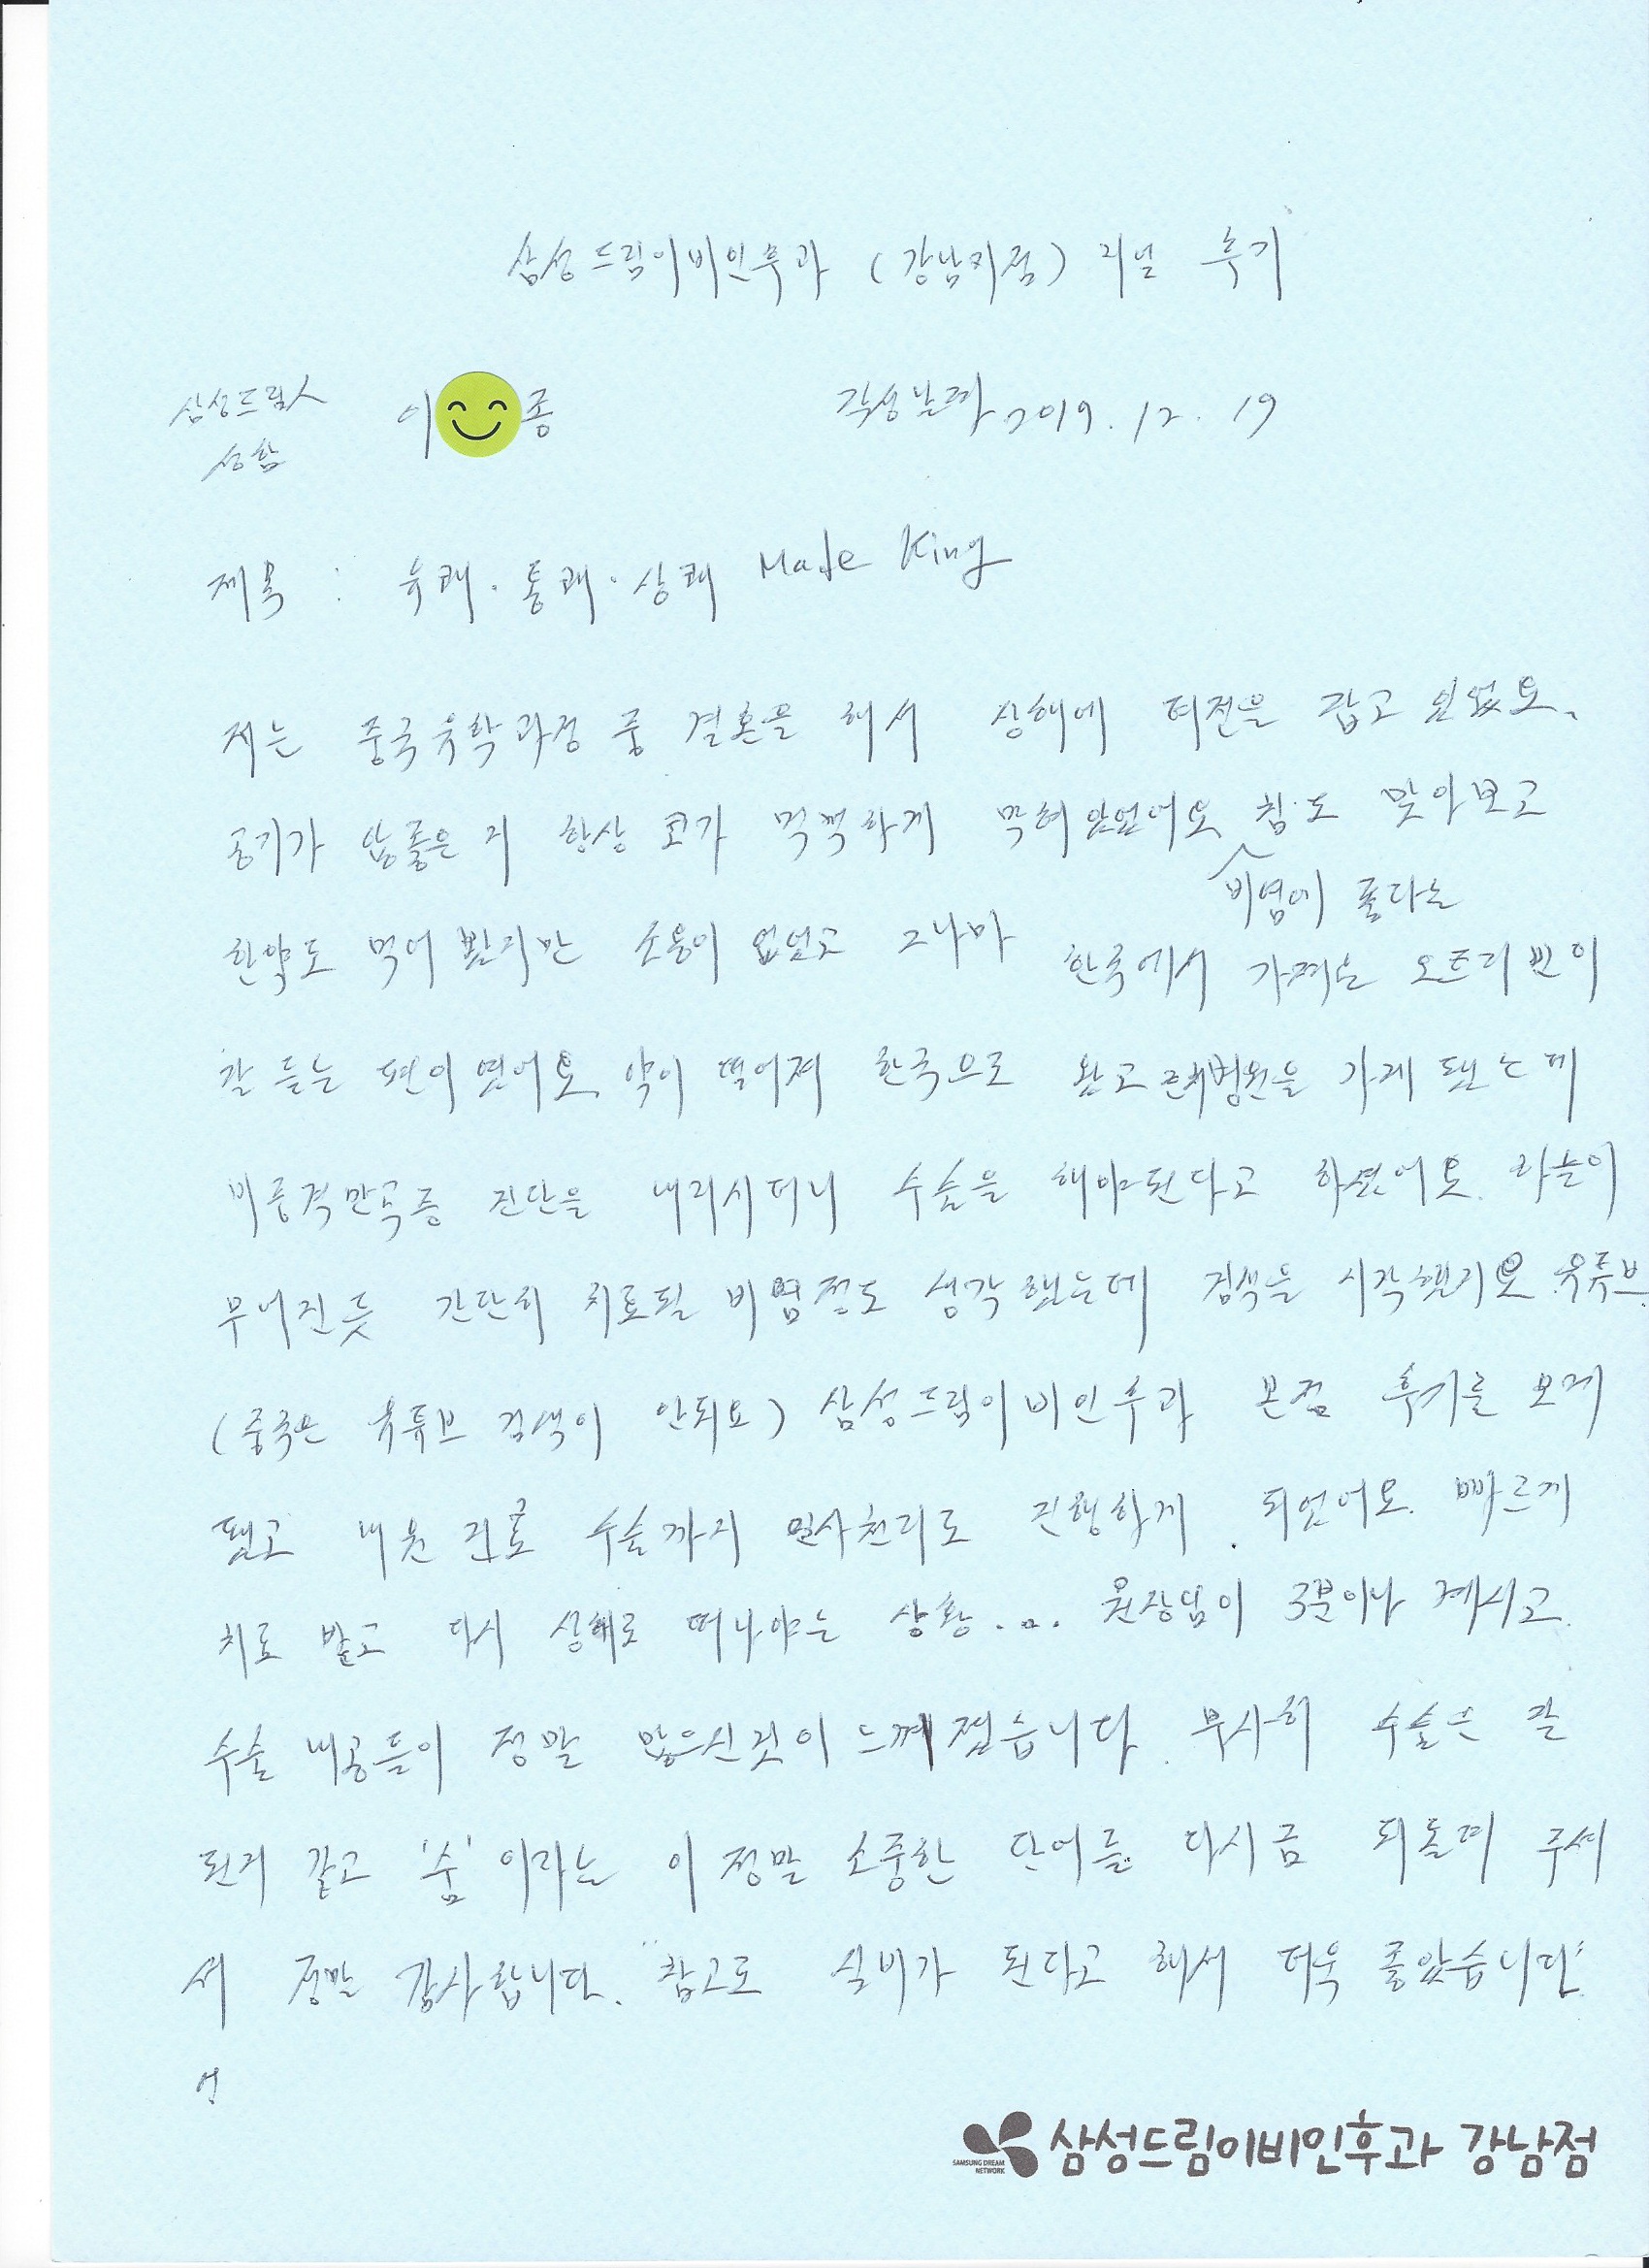 삼성드림이비인후과 (강남지점) 리얼 후기
삼성드림人 이 종 작성날짜 2019. 12. 19
성함
제목 : 유쾌·통쾌·상쾌 Made King
저는 중국유학과정 중 결혼을 해서 상해에 터전을 잡고 있었요.
공기가 안좋은지 항상 코가 먹먹하게 막혀있었어요 침도 맞아보고
비염에 좋다는
한약도 먹어 봤지만 소용이 없었고 그나마 한국에서 가져온 오트리빈이
잘 듣는 편이였어요 약이 떨어져 한국으로 왔고 병원을 가게 됐는데
비중격만곡증 진단을 내리시더니 수술을 해야된다고 하셨어요. 하늘이
무너진듯 간단히 치료될 비염정도 생각했는데 검색을 시작했지요 유튜브
(중국은 유튜브 검색이 안되요) 삼성드림이비인후과 본점 후기를 보게
됐고 내원 진료 수술까지 일사천리로 진행하게 되었어요. 빠르게
치료 받고 다시 상해로 떠나야는 상황... 원장님이 3분이나 계시고
수술 내공들이 정말 많으신것이 느껴졌습니다. 무사히 수술은 잘
된거 같고 '숨' 이라는 이 정말 소중한 단어를 다시금 되돌려 주셔
서 정말 감사합니다. "참고로 실비가 된다고 해서 더욱 좋았습니다"
SAMSUNG DREAM
NETWORK
삼성드림이비인후과 강남점